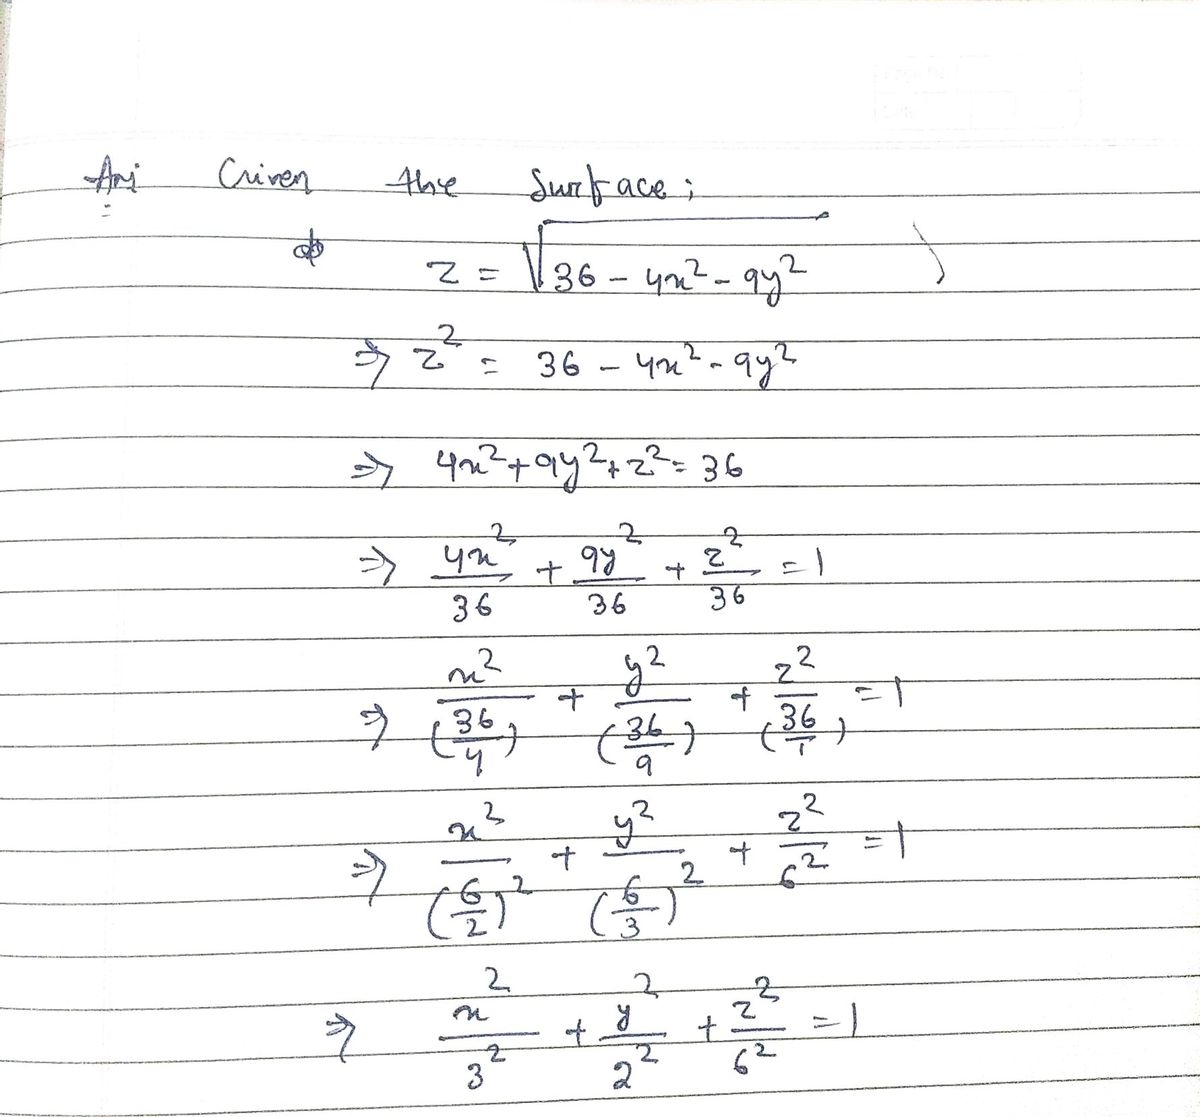 Ans Given the Surface;
z = √36 - 4x² - 9y²
⇒ z² = 36 - 4x² - 9y²
⇒ 4x² + 9y² + z² = 36
⇒ 4x²/36 + 9y²/36 + z²/36 = 1
⇒ x²/(36/4) + y²/(36/9) + z²/(36/1) = 1
⇒ x²/(6/2)² + y²/(6/3)² + z²/6² = 1
⇒ x²/3² + y²/2² + z²/6² = 1